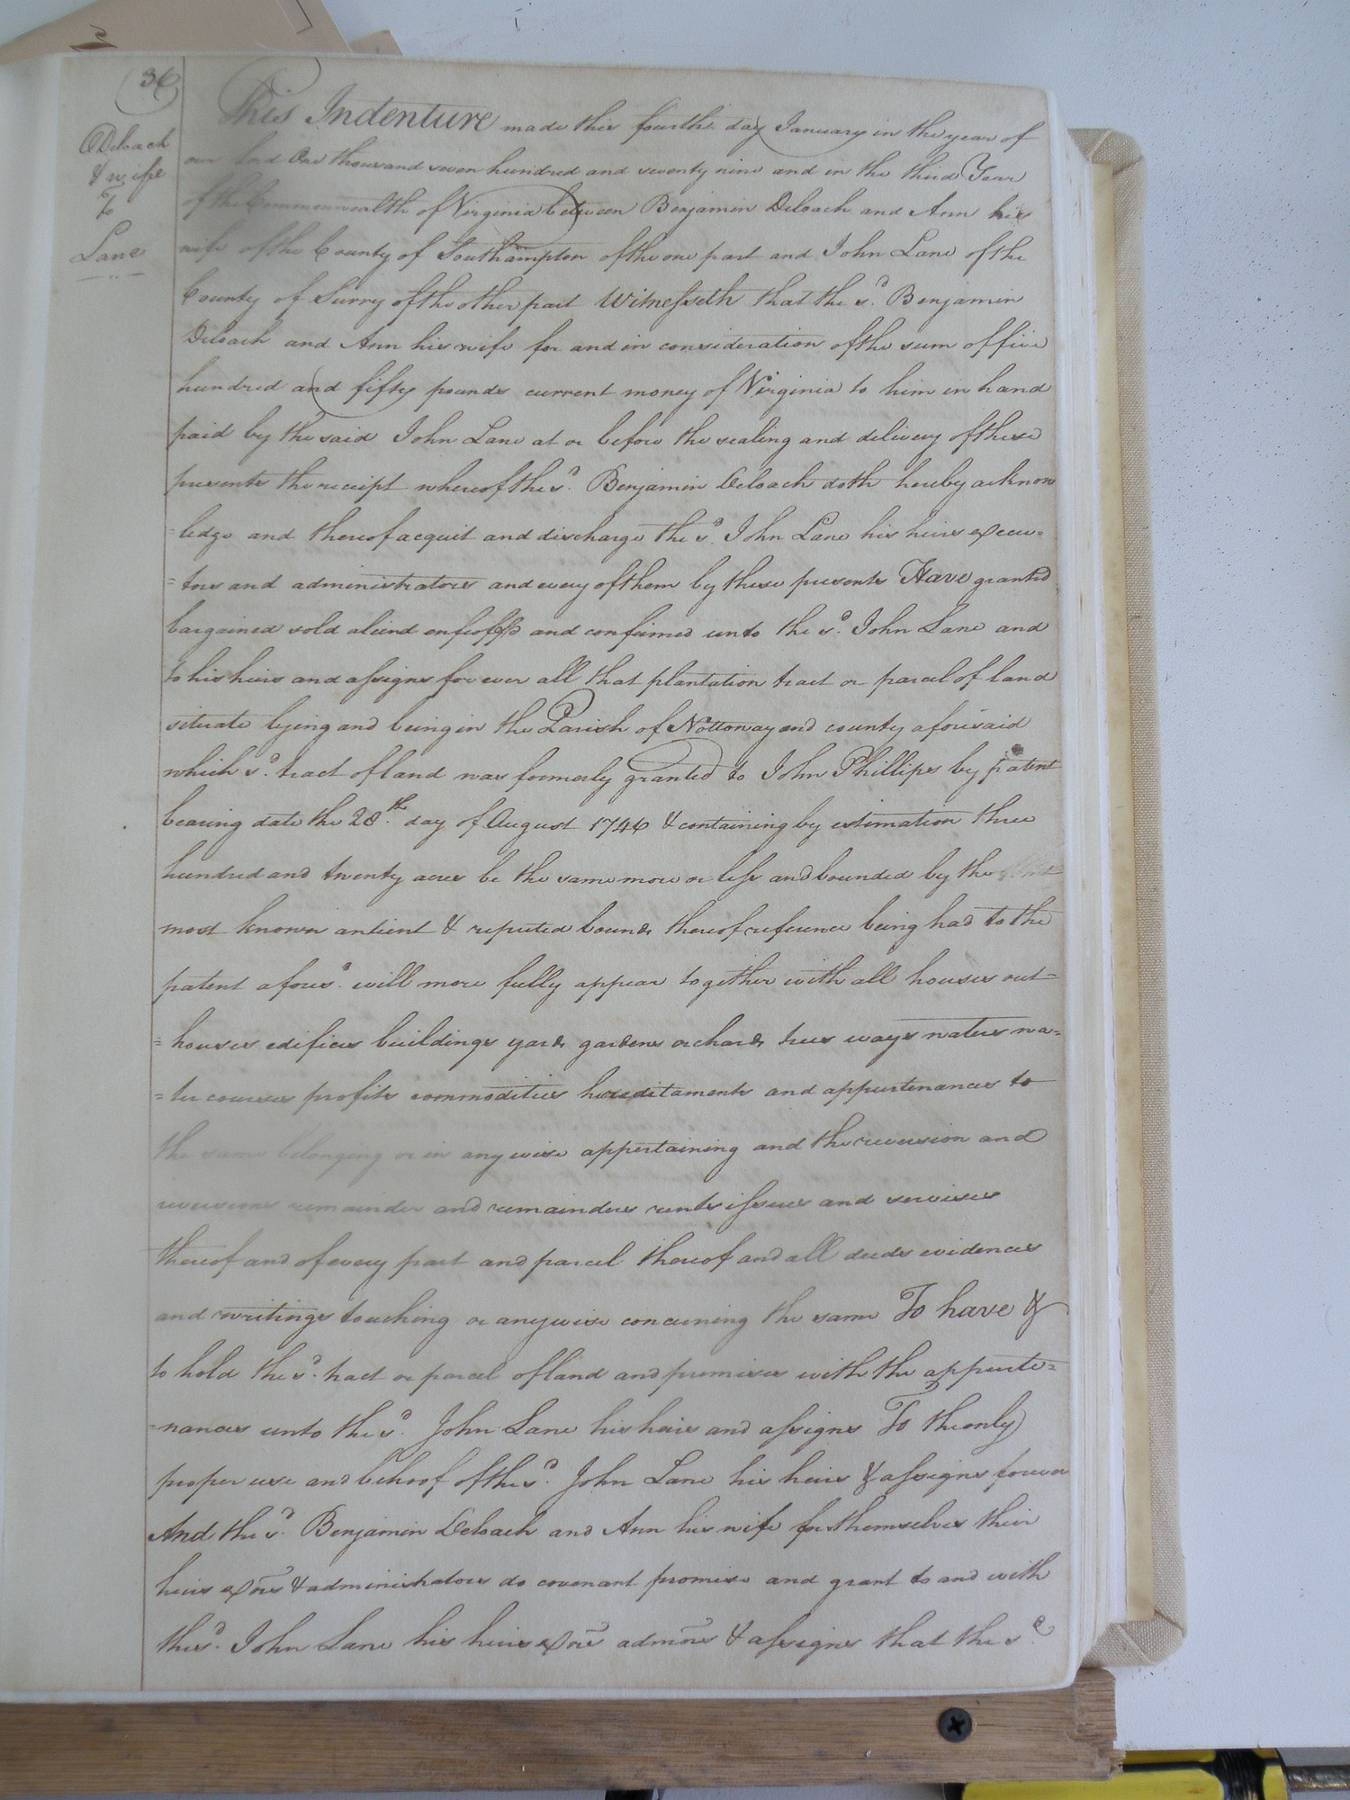 36
Deloach
& wife
to
Lane
This Indenture made this fourth day January in the year of
our lord One thousand seven hundred and seventy nine and in the third Year
of the Commonwealth of Virginia between Benjamin Deloach and Ann his
wife of the County of Southampton of the one part and John Lane of the
County of Surry of the other part Witnesseth that the sd. Benjamin
Deloach and Ann his wife for and in consideration of the sum of five
hundred and fifty pounds current money of Virginia to him in hand
paid by the said John Lane at or before the sealing and delivery of these
presents the receipt whereof the sd. Benjamin Deloach doth hereby acknow
=ledge and thereof acquit and discharge the sd. John Lane his heirs execu=
=tors and administrators and every of them by these presents Have granted
bargained sold aliend enfeoffd and confirmed unto the sd. John Lane and
to his heirs and assigns for ever all that plantation tract or parcel of land
situate lying and being in the Parish of Nottoway and county aforesaid
which sd. tract of land was formerly granted to John Phillips by patent
bearing date the 28th. day of August 1746 & containing by estimation three
hundred and twenty acres be the same more or less and bounded by the
most known antient & reputed bounds thereof reference being had to the
patent aforesd. will more fully appear together with all houses out=
=houses edifices buildings yards gardens orchards trees ways waters wa=
=ter courses profits commodities hereditaments and appurtenances to
the same belonging or in any wise appertaining and the reversion and
reversions remainder and remainders rents issues and services
thereof and of every part and parcel thereof and all deeds evidences
and writings touching or anywise concerning the same To have &
to hold the sd. tract or parcel of land and premises with the appurte=
=nances unto the sd. John Lane his heirs and assigns To the only
proper use and behoof of the sd. John Lane his heirs & assigns forever
And the sd. Benjamin Deloach and Ann his wife for themselves their
heirs exors & administrators do covenant promise and grant to and with
the sd. John Lane his heirs exors admors & assigns that the sd.